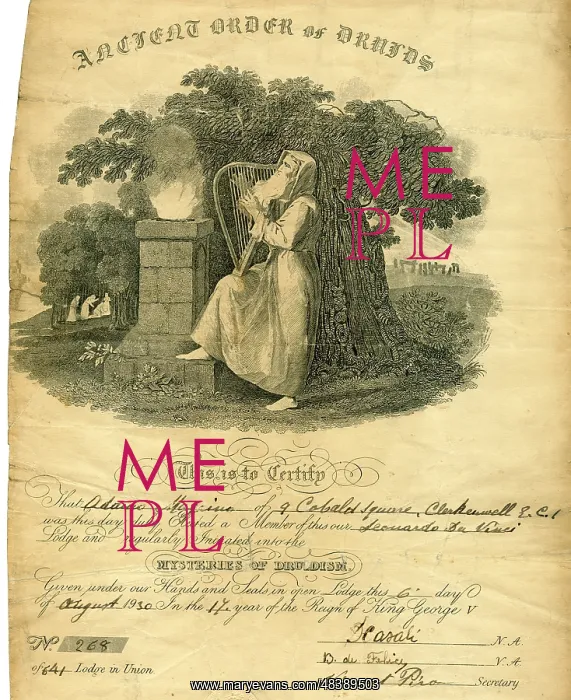 ANCIENT ORDER OF DRUIDS
ME
PL
ME
PL
This is to Certify
That of 9 Square, Clerkenwell E.C.1
was this day a Member of this our Leonardo Da Vinci
Lodge and regularly Initiated into the
MYSTERIES OF DRUIDISM.
Given under our Hands and Seals in open Lodge this 6 day
of August 1930 In the year of the Reign of King George V
N.A.
No. 268
V.A.
of 641 Lodge in Union
Secretary
www.maryevans.com/48389503